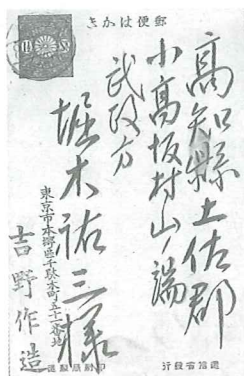 郵便はかき
高知縣土佐郡
小高坂村山ノ端
武政方
堀木祐三様
東京市本郷區千駄木町五十二番地
吉野作造
逓信省發行